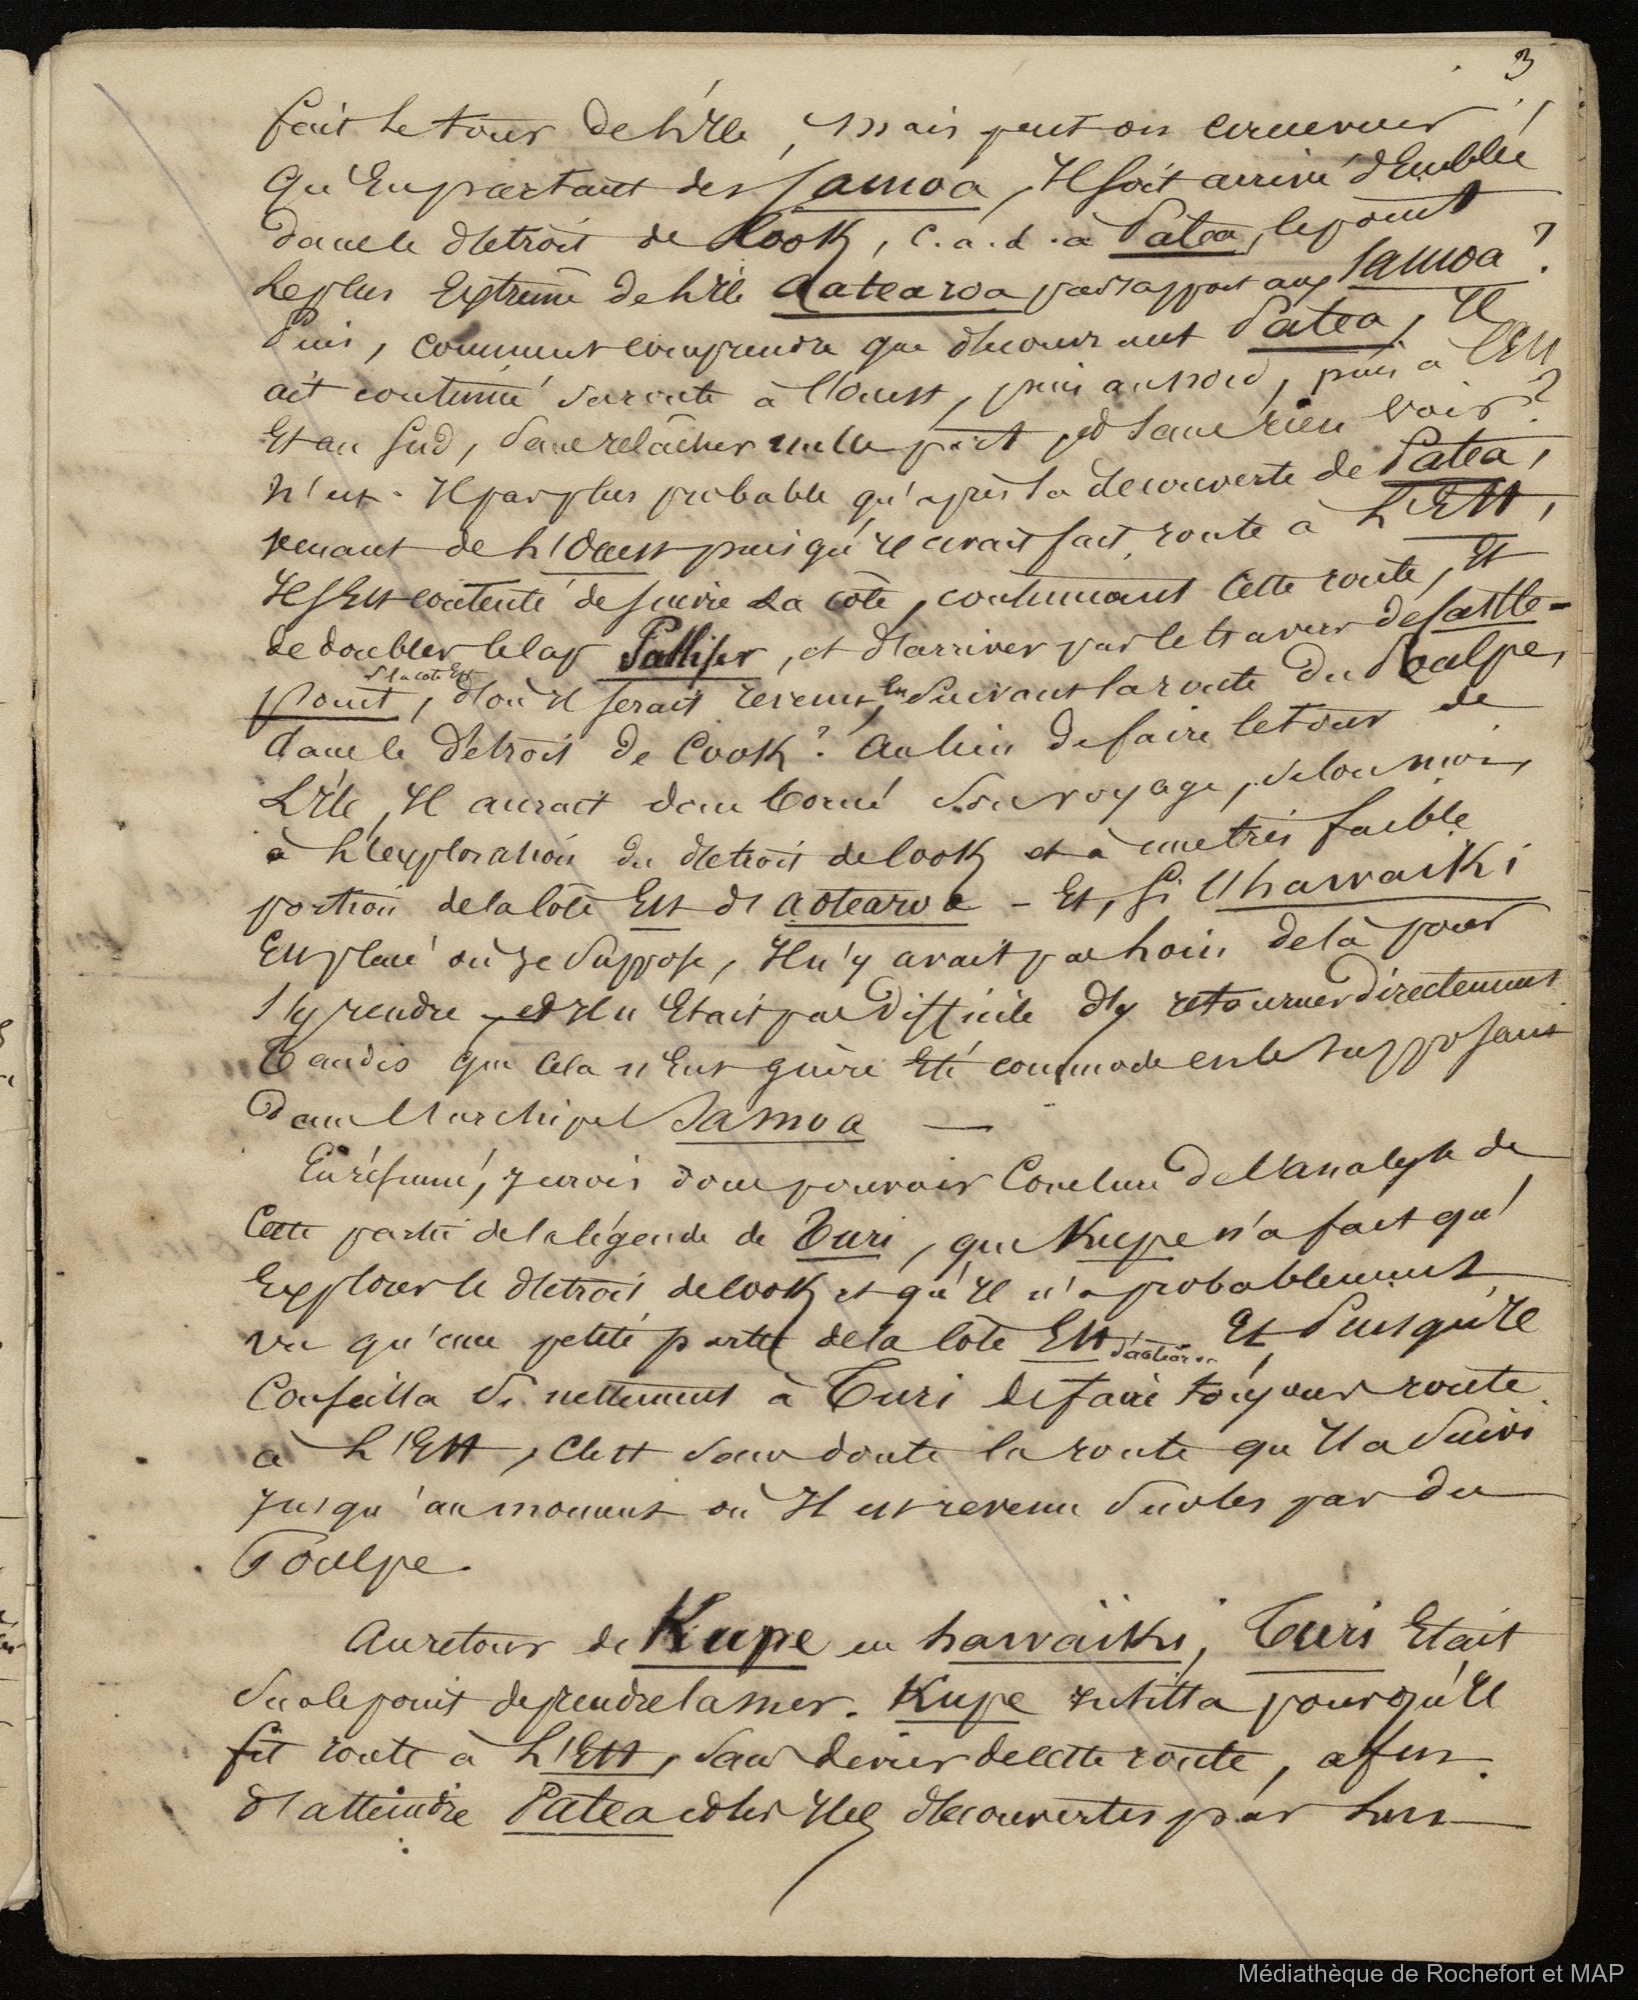 3
fait le tour de l'Ile, mais peut on concevoir
qu'En partant des Samoa, Il soit arrivé d'Emblée
dans le détroit de Cook, c.a.d. à Patea, le point
le plus Extrême de l'Ile Aotearoa par rapport aux Samoa ?
Puis, comment comprendre que découvrant Patea, Il
ait continué sa route à l'Ouest, puis au nord, puis à l'Est
Et au Sud, sans relâcher nulle part, et sans rien voir ?
N'est-Il pas plus probable qu'après la découverte de Patea,
venant de l'Ouest puisqu'Il avait fait route à l'Est,
Il s'Est contenté de suivre la côte, continuant cette route, Et
de doubler le Cap Palliser, et d'arriver par le travers de Castle-
de la côte Est
Point, d'où Il serait revenu, En suivant la route du Poulpe,
dans le détroit de Cook ? Au lieu de faire le tour de
L'Ile, Il aurait donc borné son voyage, selon moi,
à l'exploration du détroit de Cook et à une très faible
portion de la Côte Est d'Aotearoa - Et, si l'hawaïki
Est placé où je suppose, Il n'y avait pas loin de là pour
s'y rendre et Il n'Etait pas difficile d'y retourner directement
Tandis que cela n'Eut guère Eté commode en le supposant
dans l'archipel Samoa —
En résumé, je crois donc pouvoir Conclure de l'analyse de
Cette partie de la légende de Turi, que Kupe n'a fait qu'
Explorer le détroit de Cook et qu'Il n'a probablement
vu qu'une petite partie de la Côte Est d'aotearoa. Et, Puisqu'Il
Conseilla si nettement à Turi de faire toujours route
à l'Est, C'est sans doute la route qu'Il a suivi
jusqu'au moment où Il est revenu sur les pas du
Poulpe.
Au retour de Kupe en hawaïki, Turi Etait
sur le point de prendre la mer. Kupe insista pour qu'Il
fît route à l'Est, sans dévier de cette route, afin
d'atteindre Patea et les Iles découvertes par lui
Médiathèque de Rochefort et MAP